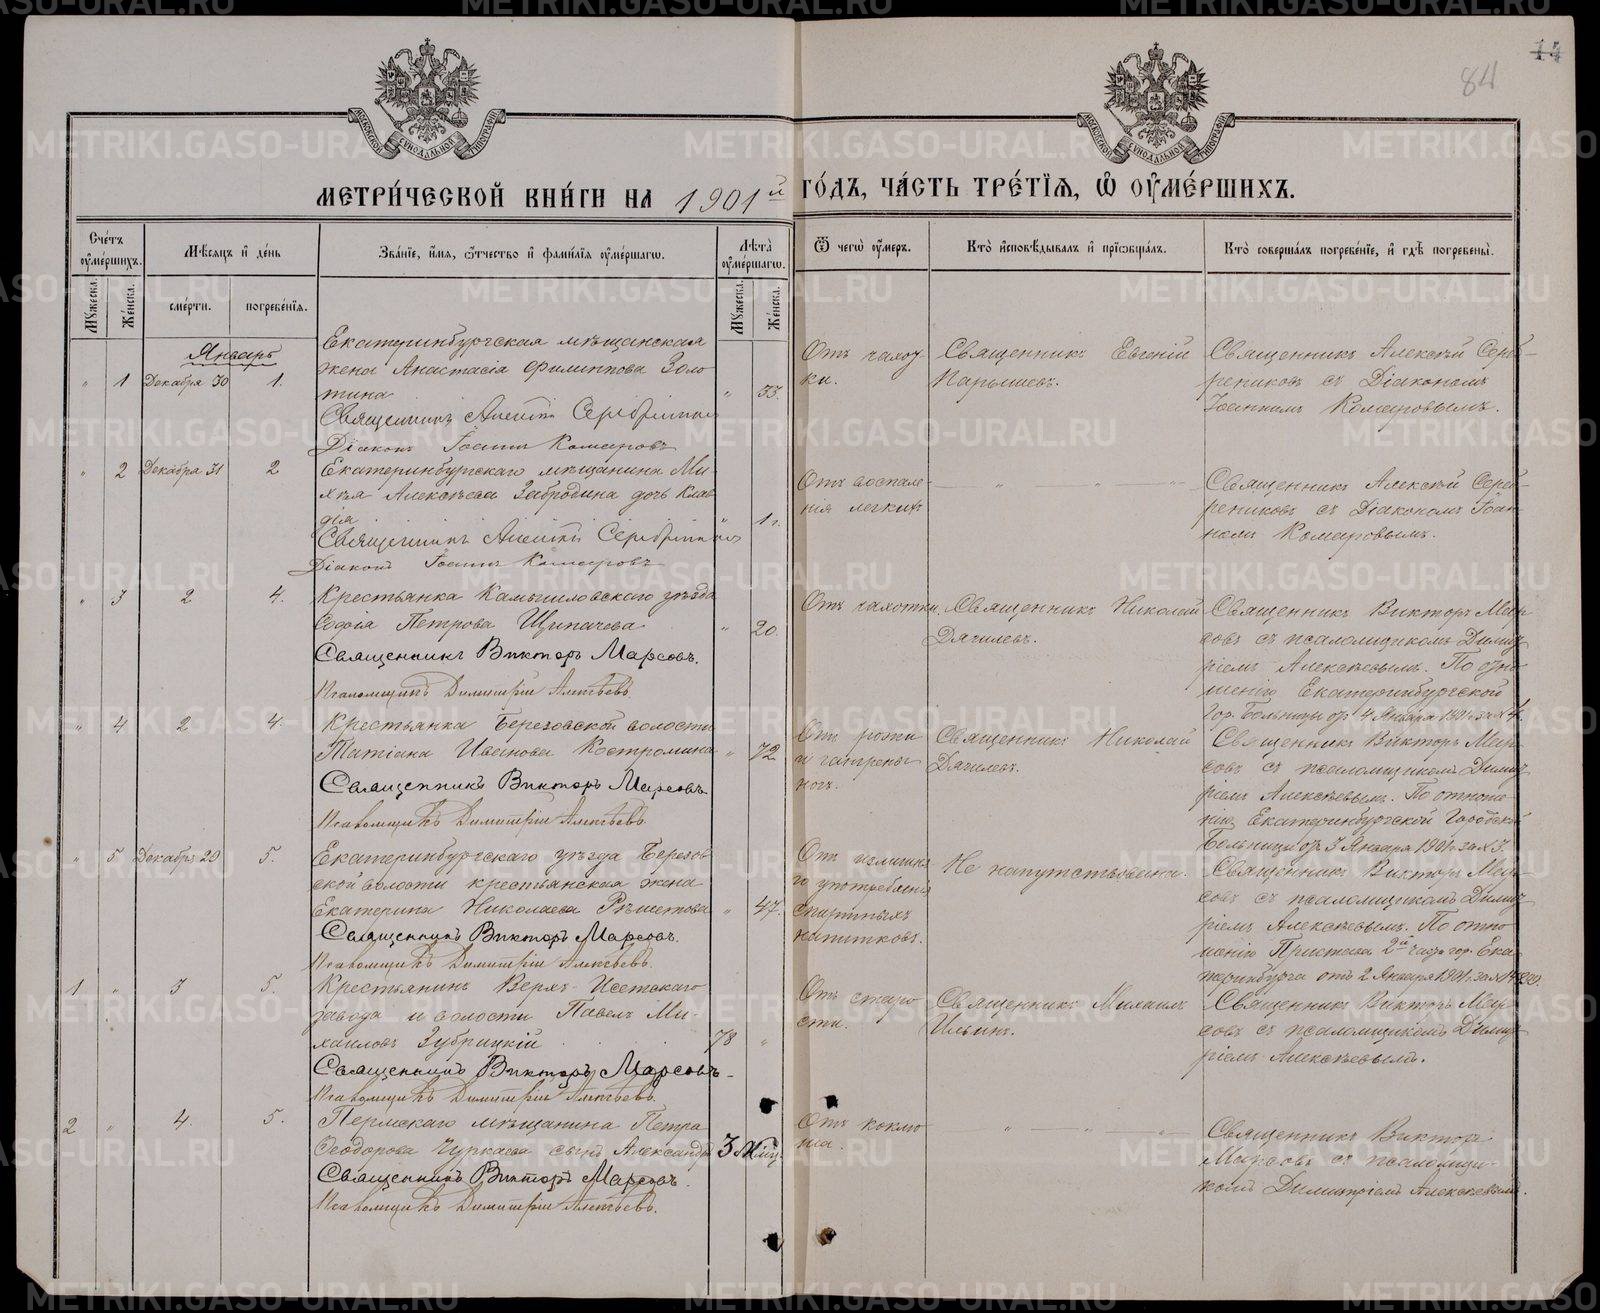 84
МЕТРИ́ЧЕСКОЙ КНИ́ГИ НА 1901й ГО́ДЪ, ЧА́СТЬ ТРЕ́ТІЯ, Ѡ ОУМЕ́РШИХЪ.
МОСКОВСКОЙ СѴНОДАЛЬНОЙ ТИПОГРАФІИ
МОСКОВСКОЙ СѴНОДАЛЬНОЙ ТИПОГРАФІИ
Сче́тъ оуме́ршихъ.
Мѣсяцъ и де́нь
Зва́ніе, и́мя, ѻ́тчество и фами́лія оуме́ршагѡ.
Лѣ́та оуме́ршагѡ.
Ѿ чегѡ̀ оу́меръ.
Кто̀ исповѣ́дывалъ и пріѡбща́лъ.
Кто̀ соверша́лъ погребе́ніе, и гдѣ̀ погребены̀.
Мꙋжеска.
Же́нска.
сме́рти.
погребе́нія.
Мꙋжеска.
Же́нска.
Январь
" 1 Декабря 30 1.
Екатеринбургская мѣщанская
жена Анастасія Филиппова Золо
тина
" 33.
Священникъ Алексѣй Серебренниковъ
Діаконъ Іоаннъ Комаровъ
Отъ чахот
ки.
Священникъ Евгеній
Парышевъ.
Священникъ Алексѣй Сереб-
рениковъ съ Діакономъ
Іоанномъ Комаровымъ.
" 2 Декабря 31 2
Екатеринбургскаго мѣщанина Ми-
хея Алексѣева Забродина дочь Клав
дія
" 1 г.
Священникъ Алексѣй Серебренниковъ
Діаконъ Іоаннъ Комаровъ
Отъ воспале-
нія легкихъ
— " — " — "
Священникъ Алексѣй Сереб-
рениковъ съ Діакономъ Іоан-
номъ Комаровымъ.
" 3 2 4.
Крестьянка Камышловскаго уѣзда
Софія Петрова Щипачева
" 20.
Священникъ Викторъ Марсовъ.
Псаломщикъ Димитрій Алексѣевъ
Отъ чахотки.
Священникъ Николай
Дягилевъ.
Священникъ Викторъ Мар
совъ съ псаломщикомъ Димит
ріемъ Алексѣевымъ. По отно
шенію Екатеринбургской
Гор. Больницы отъ 4 Января 1901 г. за № 4.
" 4 2 4.
Крестьянка Березовской волости
Татіана Иванова Костромина
" 72
Священникъ Викторъ Марсовъ.
Псаломщикъ Димитрій Алексѣевъ
Отъ рожи
и гангрены
ногъ.
Священникъ Николай
Дягилевъ.
Священникъ Викторъ Мар
совъ съ псаломщикомъ Димит
ріемъ Алексѣевымъ. По отноше-
нію Екатеринбургской Городской
Больницы отъ 3 Января 1901 г. за № 3.
" 5 Декабря 29 5.
Екатеринбургскаго уѣзда Березов
ской волости крестьянская жена
Екатерина Николаева Рѣшетова
" 47.
Священникъ Викторъ Марсовъ.
Псаломщикъ Димитрій Алексѣевъ.
Отъ излишня
го употребленія
спиртныхъ
напитковъ.
Не напутствована.
Священникъ Викторъ Мар-
совъ съ псаломщикомъ Димит
ріемъ Алексѣевымъ. По отно
шенію Пристава 2й части гор. Ека
теринбурга отъ 2 Января 1901 г. за №
1 " 3 5.
Крестьянинъ Верхъ-Исетскаго
завода и волости Павелъ Ми-
хаиловъ Зубрицкій
78 "
Священникъ Викторъ Марсовъ
Псаломщикъ Димитрій Алексѣевъ.
Отъ старо
сти.
Священникъ Михаилъ
Ильинъ.
Священникъ Викторъ Мар
совъ съ псаломщикомъ Димит
ріемъ Алексѣевымъ.
2 " 4. 5.
Пермскаго мѣщанина Петра
Ѳеодорова Чуркаева сынъ Александръ
3 Мѣц.
Священникъ Викторъ Марсовъ.
Псаломщикъ Димитрій Алексѣевъ.
Отъ коклю
ша.
" — " — "
Священникъ Викторъ
Марсовъ съ псаломщи-
комъ Димитріемъ Алексѣевымъ.
METRIKI.GASO-URAL.RU